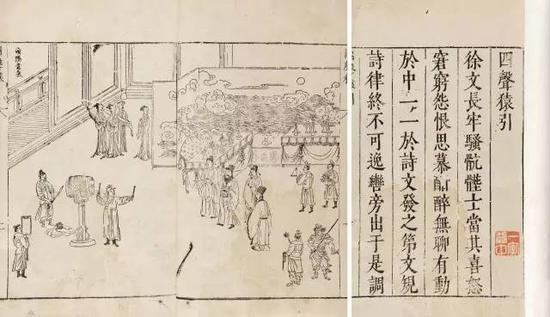 四聲猿引
徐文長牢騷骯髒士當其喜怒
窘窮怨恨思慕酣醉無聊有動
於中一一於詩文發之苐文規
詩律終不可逸轡旁出于是調